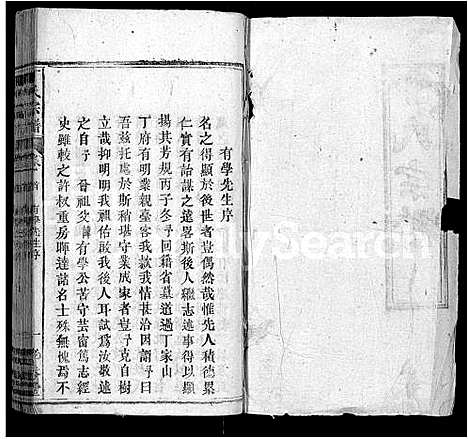 有學先生序
名之得顯於後世者豈偶然哉惟先人積德累
仁實有詒謀之遠畧斯後人繼志述事得以顯
揚其芳規丙子冬予回籍省墓道過丁家山
丁府有明業親臺客我款我情甚洽因謂予曰
吾茲托處於斯稍堪守業成家者豈予克自樹
立哉抑明明我祖佑啟我後人耳試為汝敬述
之自予 晉祖爻有學公苦守芸窗篤志經
史雖較之許叔重房暉達諸名士殊無愧焉不
氏宗譜
有學先生序
一
FamilySearch